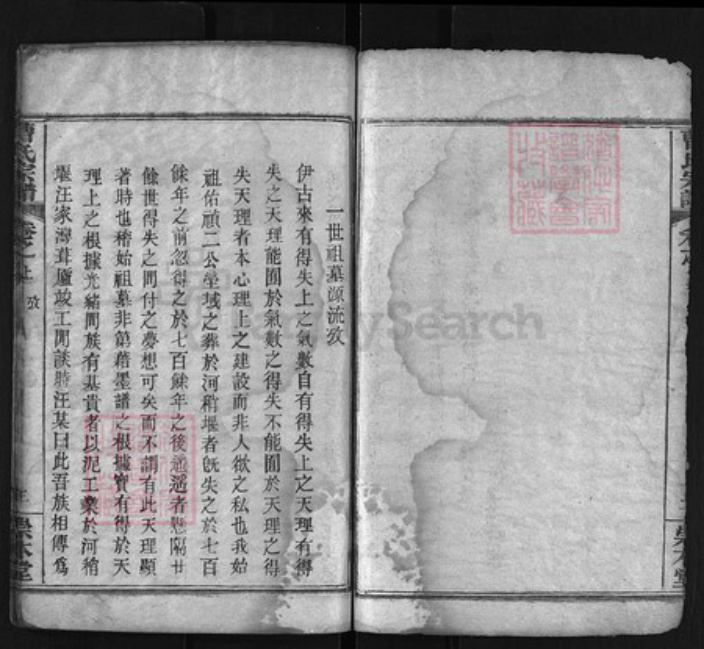 一世祖墓源流攷
伊古來有得失上之氣數自有得失上之天理有得
失之天理能囿於氣數之得失不能囿於天理之得
失天理者本心理上之建設而非人欲之私也我始
祖佑頑二公塋域之葬於河稍堰者旣失之於七百
餘年之前忽得之於七百餘年之後遙遙者懸隔廿
餘世得失之間付之夢想可矣而不謂有此天理顯
著時也稽始祖墓非第藉墨譜之根據實有得於天
理上之根據光緒間族有基貴者以泥工業於河稍
堰汪家灣葺廬竣工閒談時汪某曰此吾族相傳爲
曹氏宗譜
卷之
攷
崇本堂
曹氏宗譜
崇本堂
Search